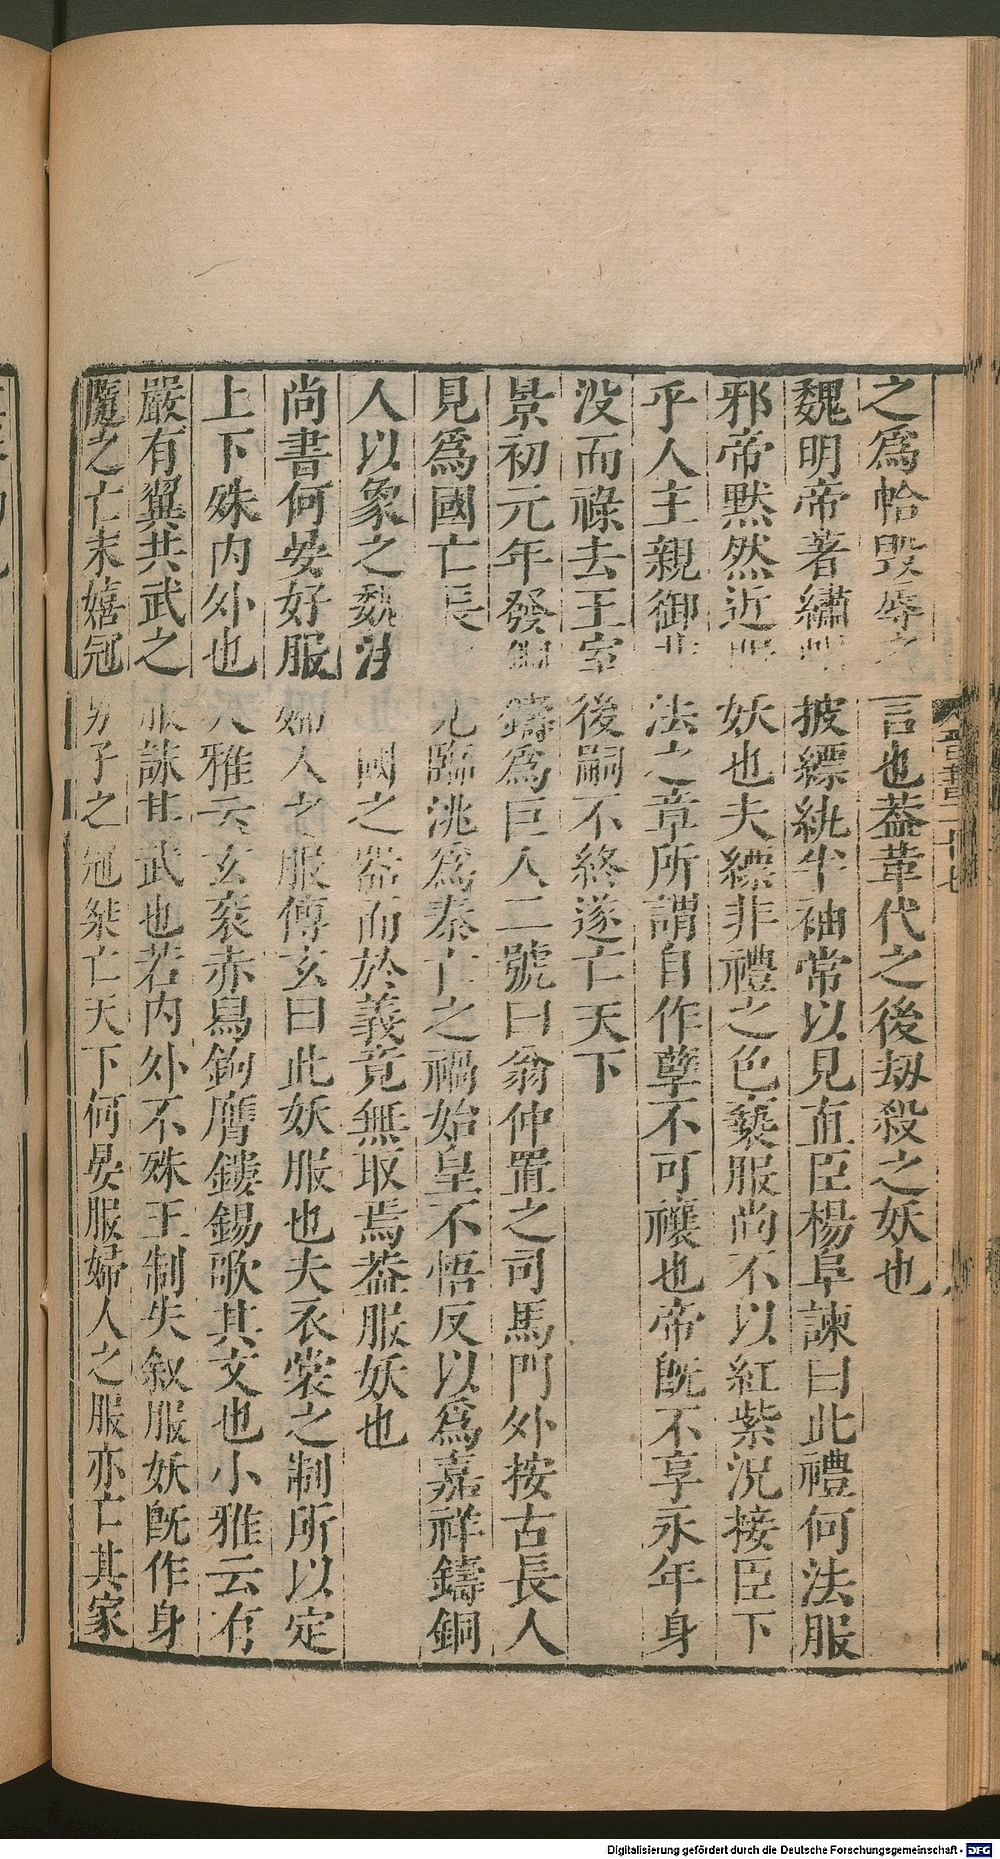 之爲帢毀辱之言也蓋革代之後劫殺之妖也
魏明帝著繡帽披縹紈半袖常以見直臣楊阜諫曰此禮何法服
邪帝默然近服妖也夫縹非禮之色褻服尚不以紅紫況接臣下
乎人主親御非法之章所謂自作孽不可禳也帝旣不享永年身
没而祿去王室後嗣不終遂亡天下
景初元年發銅鑄爲巨人二號曰翁仲置之司馬門外按古長人
見爲國亡長 見臨洮爲秦亡之禍始皇不悟反以爲嘉祥鑄銅
人以象之魏法 國之器而於義竟無取焉蓋服妖也
尚書何晏好服婦人之服傅玄曰此妖服也夫衣裳之制所以定
上下殊内外也大雅云玄衮赤舄鉤膺鏤鍚歌其文也小雅云有
嚴有翼共武之服詠其武也若内外不殊王制失叙服妖旣作身
隨之亡末嬉冠男子之冠桀亡天下何晏服婦人之服亦亡其家
晉書二十七
Digitalisierung gefördert durch die Deutsche Forschungsgemeinschaft - DFG